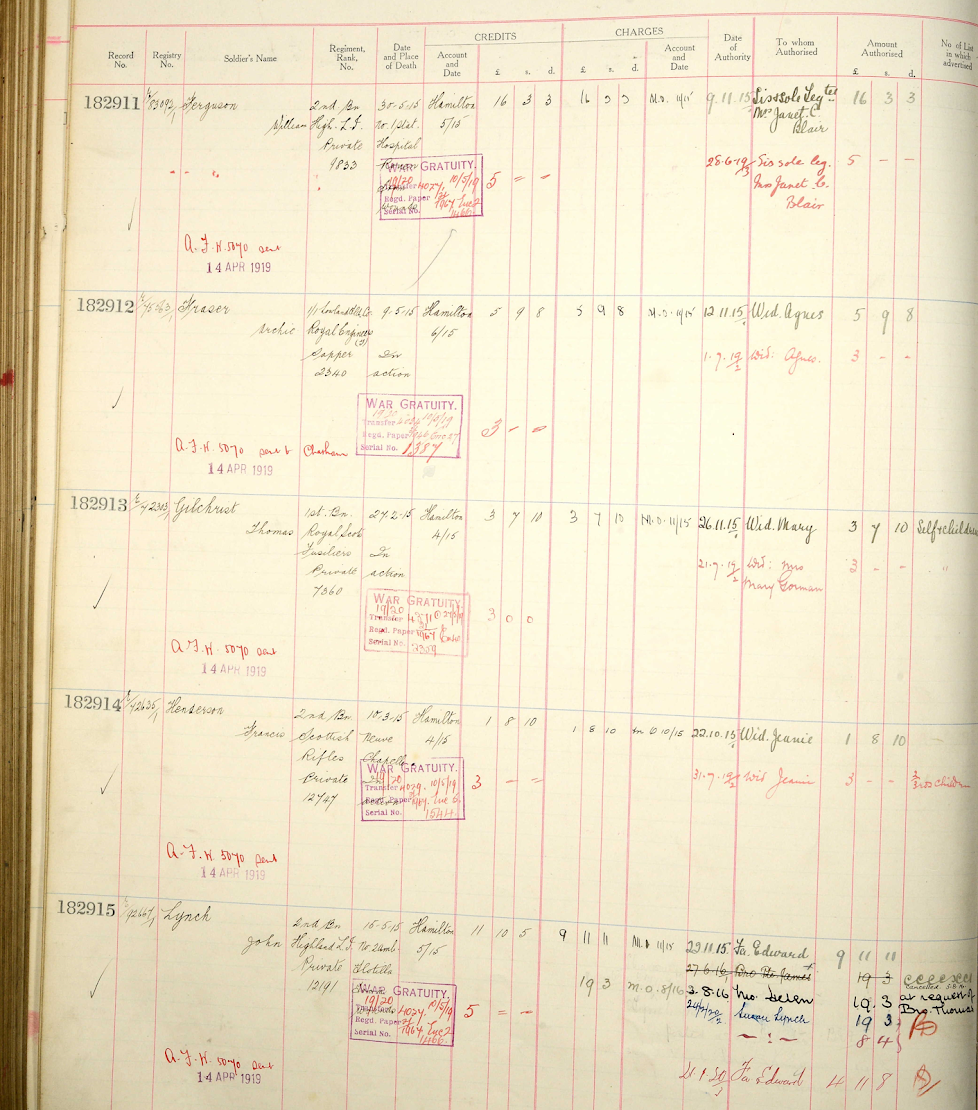 CREDITS CHARGES
Record No. Registry No. Soldier's Name Regiment, Rank, No. Date and Place of Death Account and Date £ s. d. £ s. d. Account and Date Date of Authority To whom Authorised Amount Authorised £ s. d. No. of List in which advertised
182911 Ferguson 2nd Bn 30-5-15 Hamilton 16 3 3 16 3 3 M.O. 11/15 9.11.15 Sis & sole Legtee 16 3 3
William High. L.I. No. 1 Stat. 5/15 Mrs Janet C.
Private Hospital Blair
9833
WAR GRATUITY. 5 = - 28-6-19 Sis sole leg. 5 - -
19/20 10/5/19 Mrs Janet C.
Transfer 4027 Blair
Regd. Paper
Serial No.
A.F.W. 5070 sent
14 APR 1919
182912 Fraser 9-5-15 Hamilton 5 9 8 5 9 8 M.O. 11/15 12.11.15 Wid. Agnes 5 9 8
Archie Royal Engineers 6/15
Sapper In 1.7.19 Wid: Agnes. 3 - -
2340 action
WAR GRATUITY. 3 - =
19/20 10/5/19
Transfer
Regd. Paper
Serial No. 1387
A.F.W. 5070 sent Chatham
14 APR 1919
182913 Gilchrist 1st. Bn. 27-2-15 Hamilton 3 7 10 3 7 10 M.O. 11/15 26.11.15 Wid. Mary 3 7 10 Self & children
Thomas Royal Scots 4/15
Fusiliers In 21.7.19 Wid: Mrs 3 - - "
Private action Mary Gorman
7360
WAR GRATUITY. 3 0 0
19/20
Transfer
Regd. Paper
Serial No.
A.F.W. 5070 sent
14 APR 1919
182914 Henderson 2nd Bn. 10-3-15 Hamilton 1 8 10 1 8 10 M.O. 10/15 22.10.15 Wid. Jeanie 1 8 10
Francis Scottish Neuve 4/15
Rifles Chapelle.
Private 31.7.19 Wid Jeanie 3 - - children
12747
WAR GRATUITY. 3 - =
19/20 10/5/19
Transfer 4029
Regd. Paper
Serial No. 1544
A.F.W. 5070 sent
14 APR 1919
182915 Lynch 2nd Bn 15-5-15 Hamilton 11 10 5 9 11 11 M.O. 11/15 22.11.15 Fa. Edward 9 11 11
John Highland L.I. No. 2 Amb. 5/15 27.6.16 Bro Pte James 19 3
Private Flotilla 19 3 M.O. 8/16 2.8.16 Mo. Helen 19.3 at request of Bro. Thomas
12191
WAR GRATUITY. 5 = - Susan Lynch 19 3
19/20 10/5/19 - : - 8 4
Transfer 4027
Regd. Paper
Serial No.
A.F.W. 5070 sent
14 APR 1919 Fa Edward 4 11 8